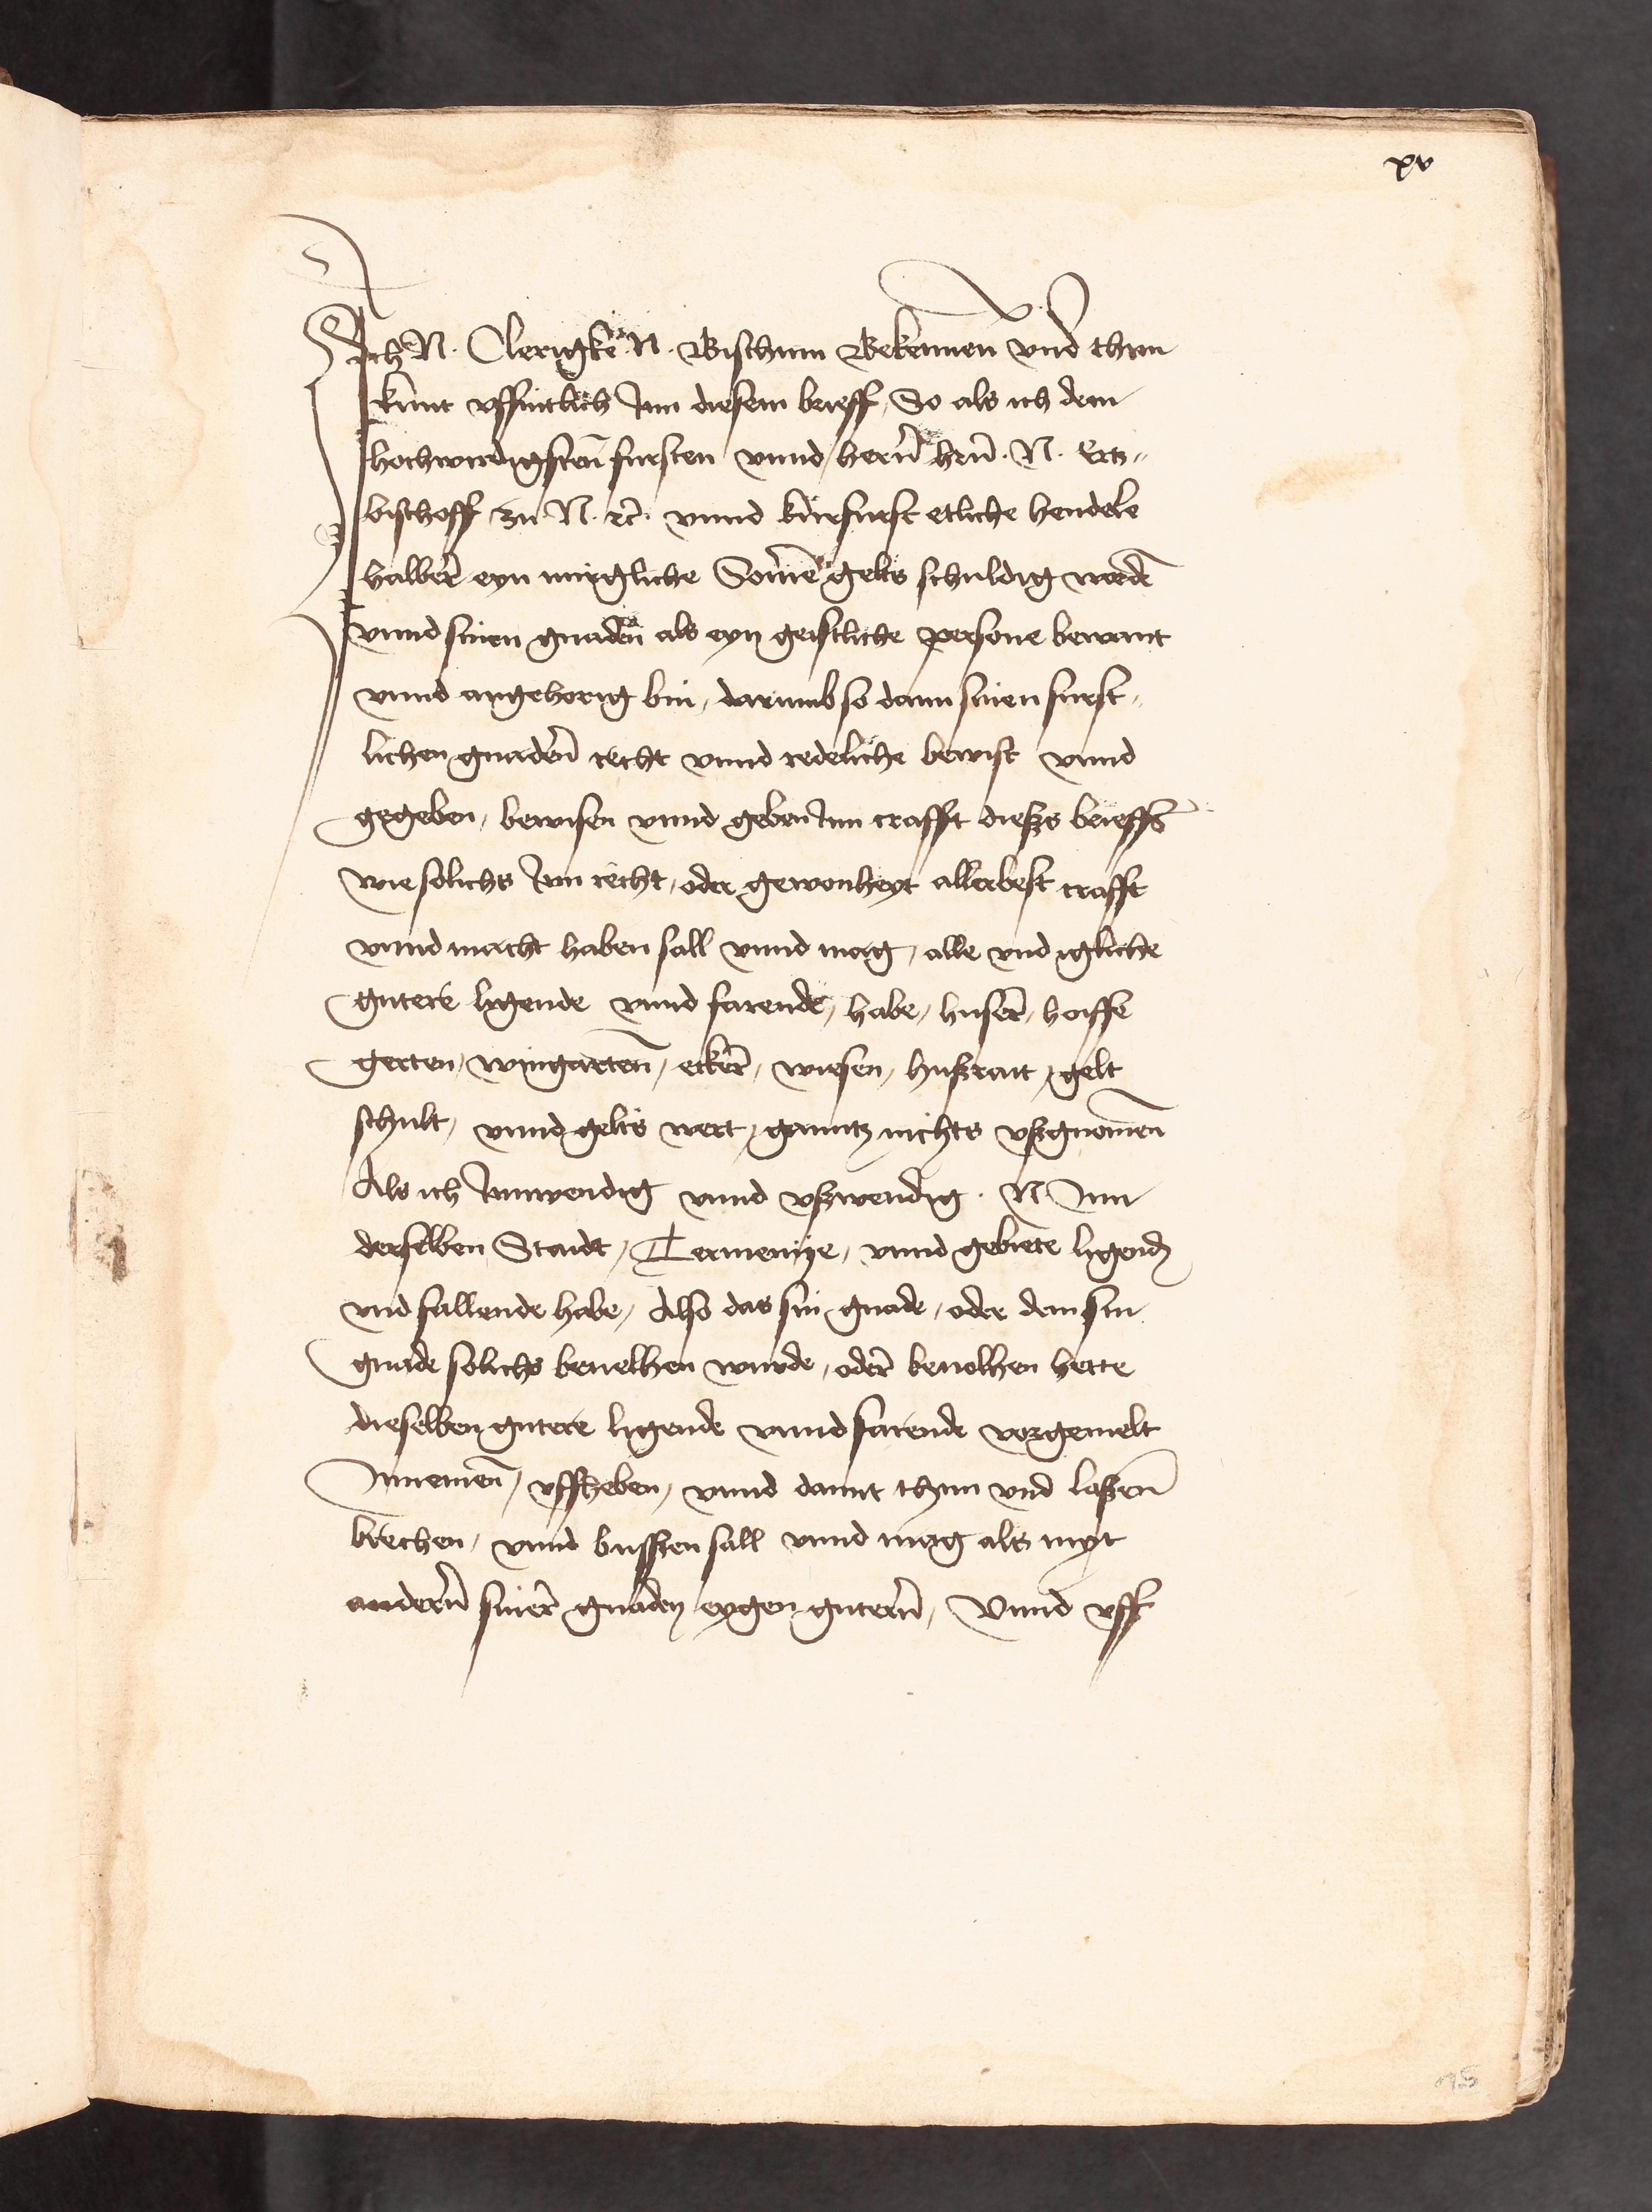 xv
Ich N. Clerigke N. Bischtum Bekennen vnd thun
kunt vffintlich Inn diesem brieff, So als ich dem
hochwirdigsten fursten vnnd hern̄ hrn̄. N. Ertz„
bischoff zu N. rc̄. vnnd kurfurst etliche hendele
halber eyn mirgliche Som̄e gelts schuldig worden̄
vnnd sinen gnaden als eyn geistliche persone bewant
vnnd angehorig bin, darumb so dann sinen furst„
lichen gnaden̄ recht vnnd redeliche bewist vnnd
gegeben, bewisen vnnd geben Inn crafft dießs brieffs
wie solichs Inn recht, oder gewonheyt allerbest crafft
vnnd macht haben sall vnnd mag, alle vnd igliche
gutere ligende vnnd farende, habe, huser, hoiffe
gerten, wingarten̄, ecker, wiesen, hußrait, gelt
schult, vnnd gelts wert, ganntz nichts vßgnom̄en
Als ich Innwendig vnnd vßwendig. N Inn
derselben Stadt, Termenye, vnnd gebiete ligend
vnd fallende habe, Also das sin gnade, oder dem sin
gnade solichs beuelhen wurde, oder beuolhen hette
dieselben gutere ligende vnnd farende vorgemelt
Innemen̄, vffheben, vnnd damit thun vnd laßen̄
brechen, vnnd busszen sall vnnd mag als myt
andern̄ siner gnaden eygen gutern̄, Vnnd vff
15